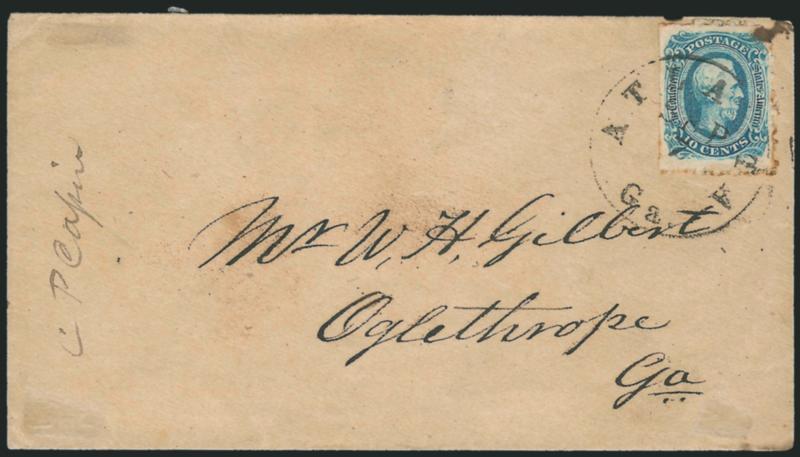 POSTAGE
The Confederate States of America
10 CENTS
Ga
Mr W. H. Gilbert
Oglethrope
Ga